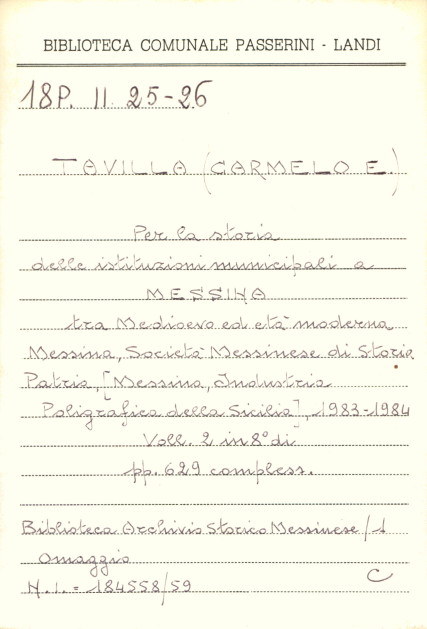 BIBLIOTECA COMUNALE PASSERINI - LANDI
18P. II. 25-26
TAVILLA (CARMELO E.)
Per la storia
delle istituzioni municipali a
MESSINA
tra Medioevo ed età moderna
Messina, Società Messinese di Storia
Patria, [Messina, Industria
Poligrafica della Sicilia], 1983-1984
Voll. 2 in 8° di
pp. 629 compless.
Biblioteca Archivio Storico Messinese/1
Omaggio
N.I. = 184558/59
C